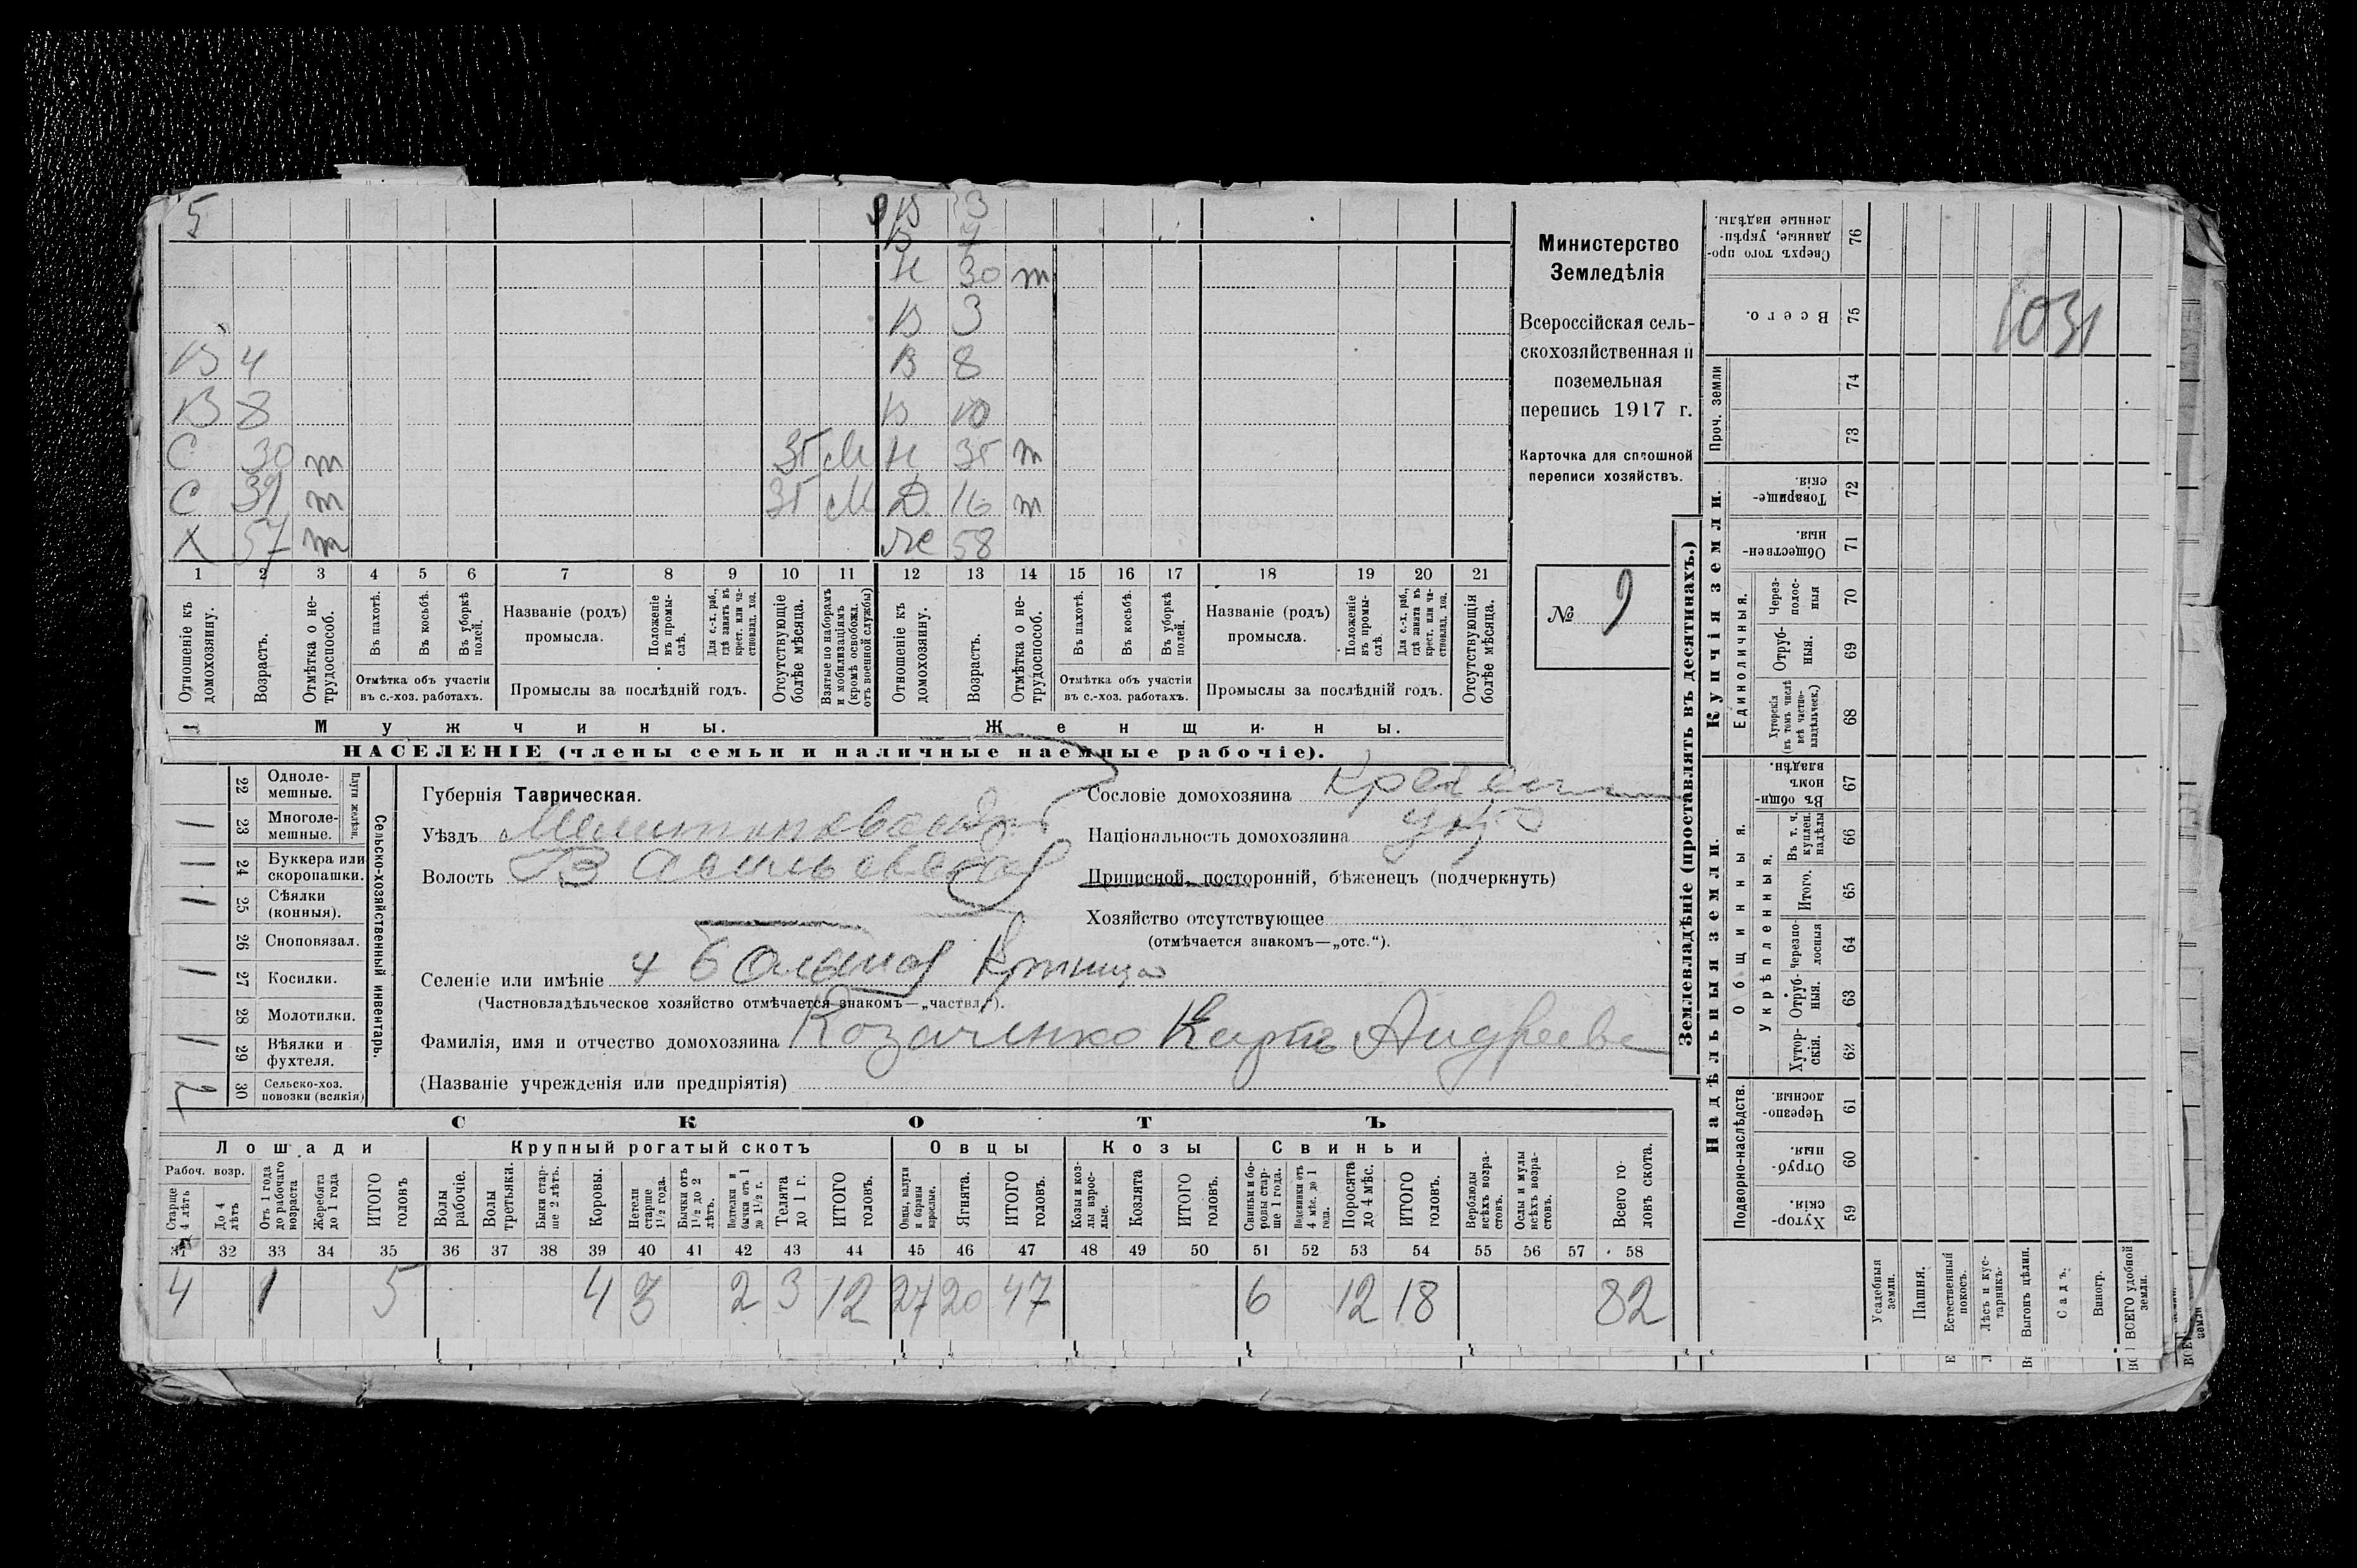 5 9 В 3
В 7
Н 30 т
В 3
В 4 В 8
В 8 В 10
С 30 т 3Г М Н 35 т
С 31 т 3Г М Д 16 т
Х 57 т Же 58
1 2 3 4 5 6 7 8 9 10 11 12 13 14 15 16 17 18 19 20 21
Отношеніе къ домохозяину.
Возрастъ.
Отмѣтка о не-трудоспособ.
Въ пахотѣ.
Въ косьбѣ.
Въ уборкѣ полей.
Отмѣтка объ участіи
въ с.-хоз. работахъ.
Названіе (родъ)
промысла.
Положеніе въ промы-слѣ.
Для с.-х. раб., гдѣ занятъ въ крест. или ча-стновлад. хоз.
Промыслы за послѣдній годъ.
Отсутствующіе болѣе мѣсяца.
Взятые по наборамъ и мобилизаціямъ (кромѣ освобожд. отъ военной службы)
Отношеніе къ домохозяину.
Возрастъ.
Отмѣтка о не-трудоспособ.
Въ пахотѣ.
Въ косьбѣ.
Въ уборкѣ полей.
Отмѣтка объ участіи
въ с.-хоз. работахъ.
Названіе (родъ)
промысла.
Положеніе въ промы-слѣ.
Для с.-х. раб., гдѣ занятъ въ крест. или ча-стновлад. хоз.
Промыслы за послѣдній годъ.
Отсутствующія болѣе мѣсяца.
Мужчины. Женщины.
НАСЕЛЕНІЕ (члены семьи и наличные наемные рабочіе).
Министерство
Земледѣлія
Всероссійская сель-
скохозяйственная и
поземельная
перепись 1917 г.
Карточка для сплошной
переписи хозяйствъ.
№ 9
Сельско-хозяйственный инвентарь.
Плуги желѣзн.
22 Одноле-мешные.
1 23 Многоле-мешные.
1 24 Буккера или скоропашки.
1 25 Сѣялки (конныя).
26 Сноповязал.
1 27 Косилки.
28 Молотилки.
1 29 Вѣялки и фухтеля.
2 30 Сельско-хоз. повозки (всякія)
Губернія Таврическая.
Уѣздъ Мелитопольскій
Волость Васильевская
Селеніе или имѣніе
(Частновладѣльческое хозяйство отмѣчается знакомъ—„частвл.“).
Фамилія, имя и отчество домохозяина Козаченко Карпъ Андреевъ
(Названіе учрежденія или предпріятія)
Сословіе домохозяина
Національность домохозяина укр
Приписной, посторонній, бѣженецъ (подчеркнуть)
Хозяйство отсутствующее
(отмѣчается знакомъ—„отс.“).
СКОТЪ
Лошади Крупный рогатый скотъ Овцы Козы Свиньи
Рабоч. возр.
Старше 4 лѣтъ
До 4 лѣтъ
Отъ 1 года до рабочаго возраста
Жеребята до 1 года
ИТОГО головъ
Волы рабочіе.
Волы третьяки.
Быки стар-ше 2 лѣтъ.
Коровы.
Нетели старше 1½ года.
Бычки отъ 1½ до 2 лѣтъ.
Подтелки и бычки отъ 1 до 1½ г.
Телята до 1 г.
ИТОГО головъ.
Овцы, валухи и бараны взрослые.
Ягнята.
ИТОГО головъ.
Козы и коз-лы взрос-лые.
Козлята
ИТОГО головъ.
Свиньи и бо-ровы стар-ше 1 года.
Подсвинки отъ 4 мѣс. до 1 года.
Поросята до 4 мѣс.
ИТОГО головъ.
Верблюды всѣхъ возра-стовъ.
Ослы и мулы всѣхъ возра-стовъ.
Всего го-ловъ скота.
31 32 33 34 35 36 37 38 39 40 41 42 43 44 45 46 47 48 49 50 51 52 53 54 55 56 57 58
4 1 5 4 3 2 3 12 27 20 47 6 12 18 82
Землевладѣніе (проставлять въ десятинахъ.)
Купчія земли.
Надѣльныя земли.
Сверхъ того про-данные, укрѣп-ленные надѣлы. 76
Всего. 75
1031
Проч. земли 74
73
Товарище-скія. 72
Обществен-ныя. 71
Единоличныя.
Через-полос-ныя 70
Отруб-ныя. 69
Хуторскія (въ томъ числѣ всѣ частно-владѣльческ.) 68
Общинныя.
Въ общи-номъ владѣн. 67
Укрѣпленныя.
Въ т. ч. куплен. надѣлы 66
Итого. 65
Черезпо-лосныя 64
Отруб-ныя. 63
Хутор-скія. 62
Подворно-наслѣдств.
Черезпо-лосныя. 61
Отруб-ныя. 60
Хутор-скія. 59
Усадебныя земли.
Пашня.
Естественный покосъ.
Лѣсъ и кус-тарникъ.
Выгонъ цѣлин.
Садъ.
Виногр.
ВСЕГО удобной земли.